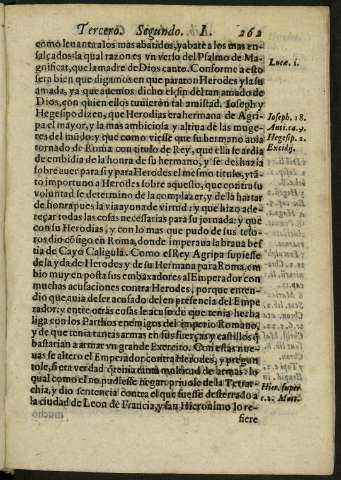 Tercero. Segundo. I. 262
como leuanta a los mas abatidos, y abate a los mas en-
salçados: la qual razon es vn verso del Psalmo de Ma-
gnificat, que la madre de Dios canto. Conforme a esto
Lucæ. i.
sera bien que digamos en que pararon Herodes y la su
amada, ya que auemos dicho el fin del tan amado de
Dios, con quien ellos tuuieron tal amistad. Ioseph y
Hegesipo dizen, que Herodias era hermana de Agri-
Ioseph. 18.
pa el mayor, y la mas ambiciosa y altiua de las muge-
Anti. ca. 9.
res del mũdo: y que como viesse que su hermano auia
Hegesip. 2.
tornado de Roma con titulo de Rey, que ella se ardia
Excidy.
de embidia de la honra de su hermano, y se deshazia
sobre auer para si y para Herodes el mesmo titulo, y tã-
to importuno a Herodes sobre aquesto, que contra su
voluntad se determino de la complazer, y de la hartar
de honra pues la via ayona de virtud: y que hizo ade-
reçar todas las cosas necessarias para su jornada: y que
con su Herodias, y con lo mas que pudo de sus teso-
ros dio cõsigo en Roma, donde imperaua la braua bes
tia de Cayo Caligula. Como el Rey Agripa supiesse
de la yda de Herodes y de su Hermana para Roma, em
bio muy en posta sus embaxadores al Emperador con
muchas acusaciones contra Herodes, porque enten-
dio que auia de ser acusado del en presencia del Empe
rador: y entre otras cosas le acuso de que tenia hecha
liga con los Parthos enemigos del imperio Romano,
y de que tenia tantas armas en sus fuerças y castillos q̃
bastarian a armar vn grande Exercito. Con estas nue-
uas se altero el Emperador contra Herodes, y pregun
tole, si era verdad q̃ tenia tanta multitud de armas: lo
qual como el no pudiesse negar: priuole de la Tetrar-
Hier. super
chia, y dio sentencia contra el que fuesse desterrado a
c. 2. Matt.
la ciudad de Leon de Francia, y san Hieronimo lo re-
fiere